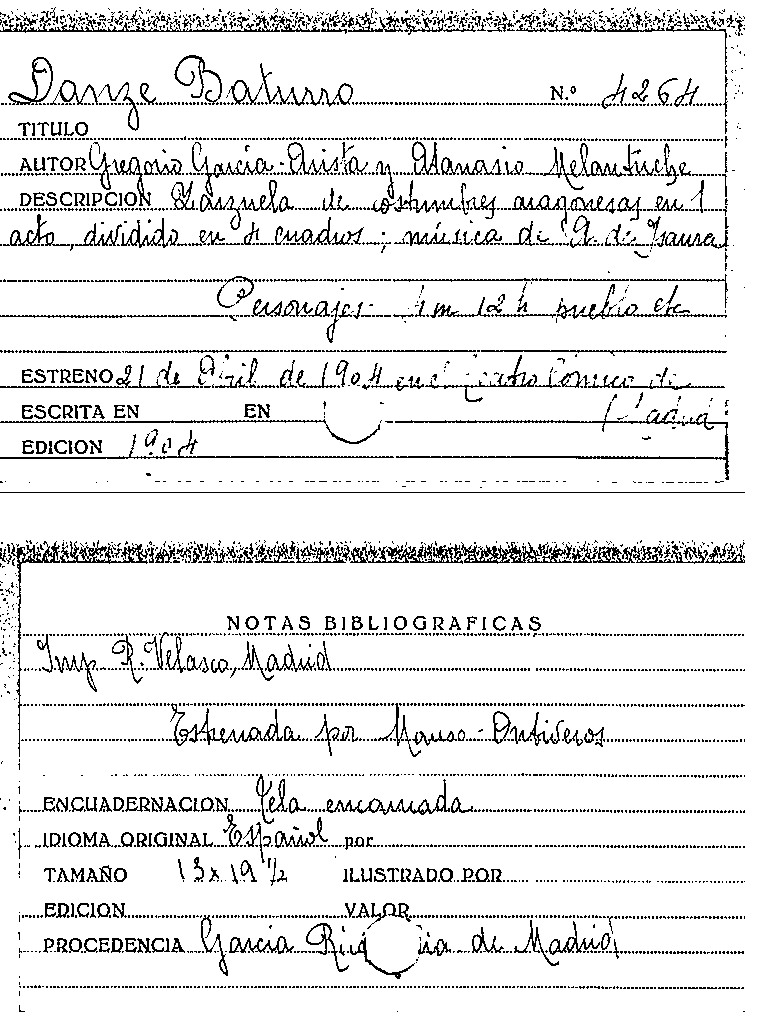 Danze Baturro N.º 4264
TITULO
AUTOR Gregorio García-Arista y Atanasio Melantuche
DESCRIPCION Zarzuela de costumbres aragonesas en 1
acto, dividido en 4 cuadros; música de A. de Isaura
Personajes - 4 m 12 h pueblo etc
ESTRENO 21 de Abril de 1904 en el Teatro Cómico de
ESCRITA EN EN Madrid
EDICION 1904
NOTAS BIBLIOGRAFICAS
Imp R. Velasco, Madrid
Estrenada por Manso-Ontiveros
ENCUADERNACION Tela encarnada
IDIOMA ORIGINAL Español por
TAMAÑO 13 x 19 1/2 ILUSTRADO POR
EDICION VALOR
PROCEDENCIA García de Madrid